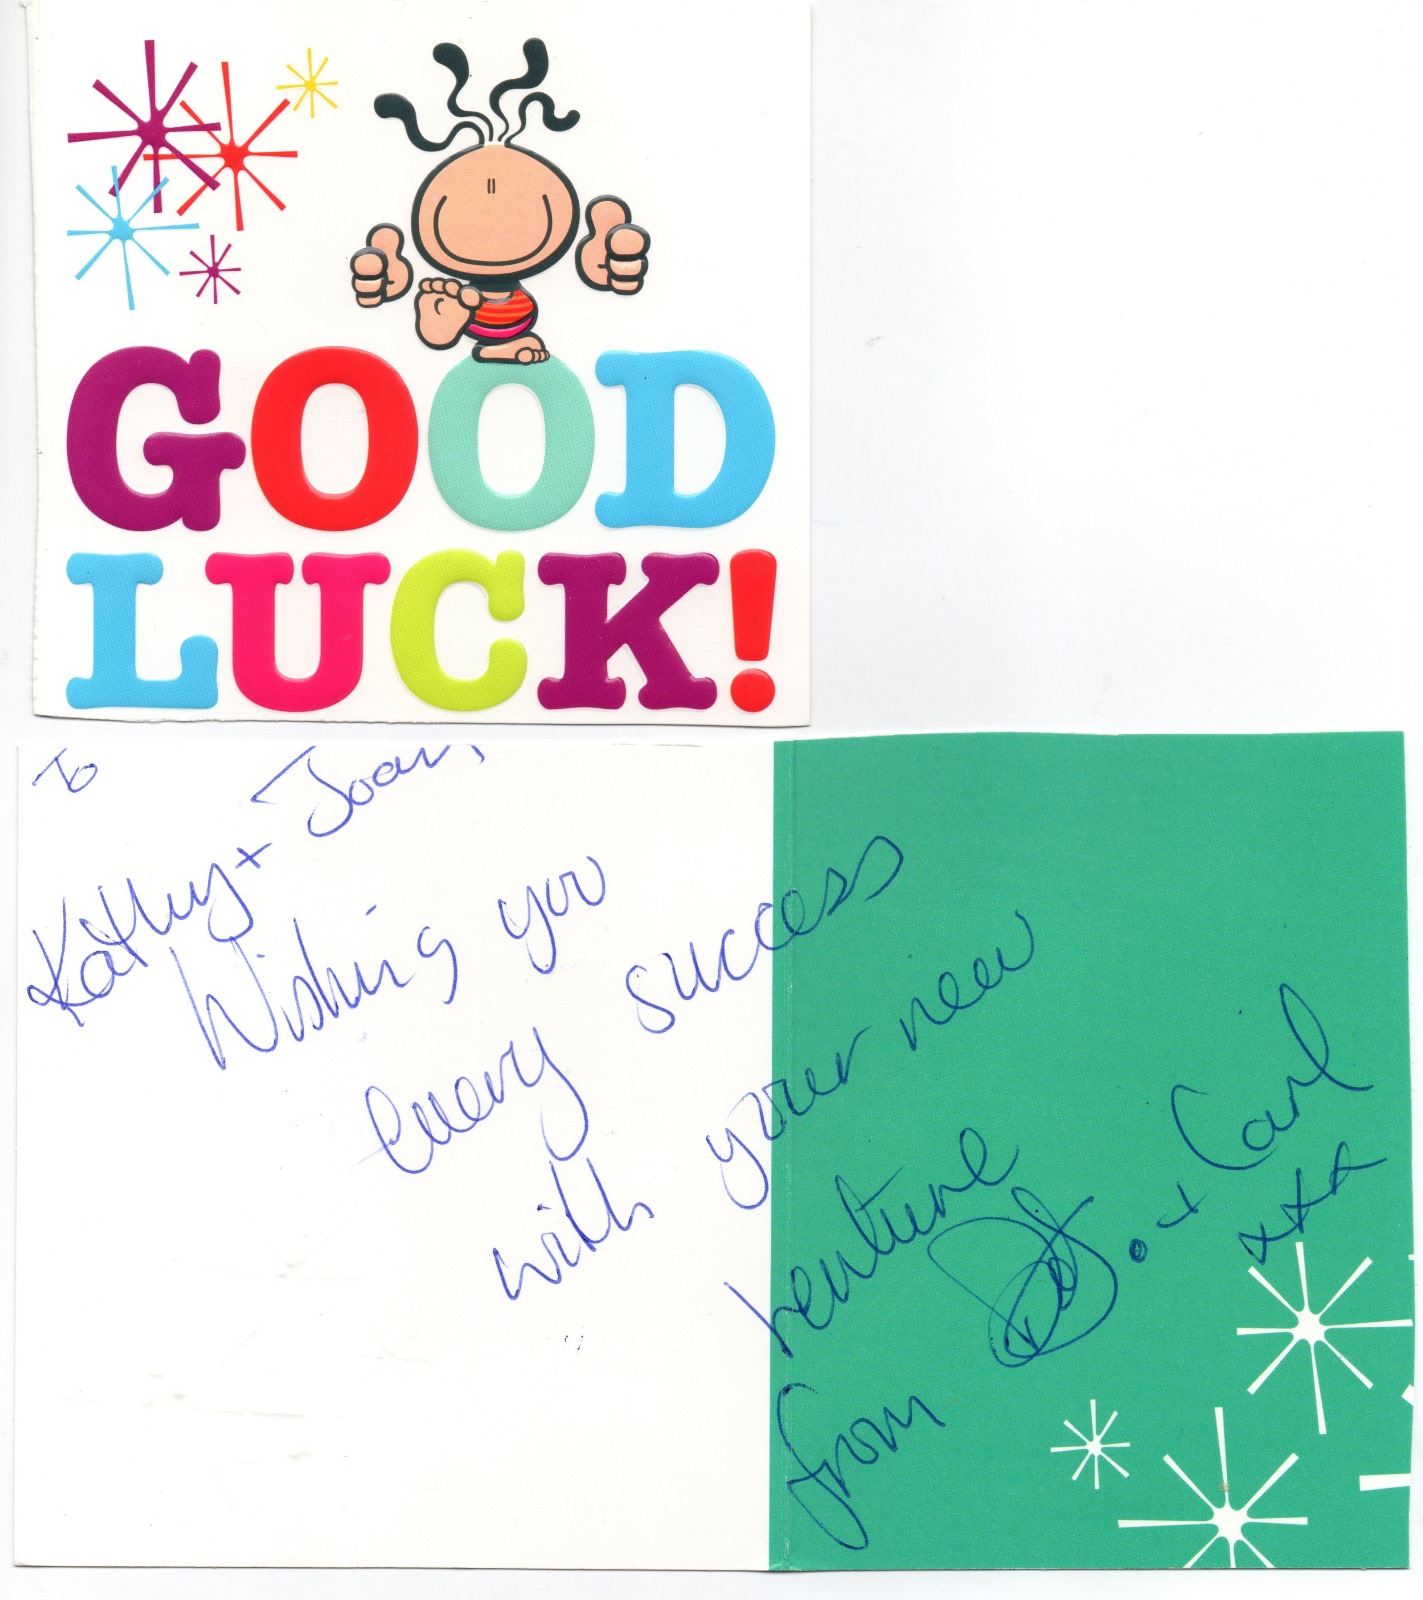 GOOD
LUCK!
To
Kathy + Joan,
Wishing you
every success
with your new
venture
from + Carl
xxx